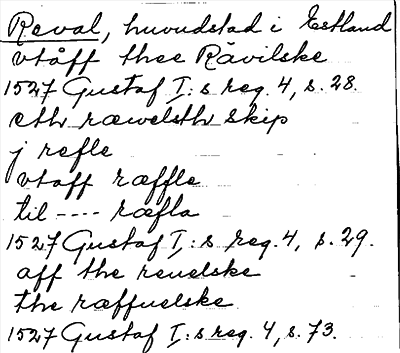 Reval, huvudstad i Estland
vtåff thee Råvilske
1527 Gustaf I:s reg. 4, s. 28.
eth ræwelsth skip
j refle
vtaff ræffle
til ---- ræfla
1527 Gustaf I:s reg. 4, s. 29.
aff the reuelske
the ræffuelske
1527 Gustaf I:s reg. 4, s. 73.